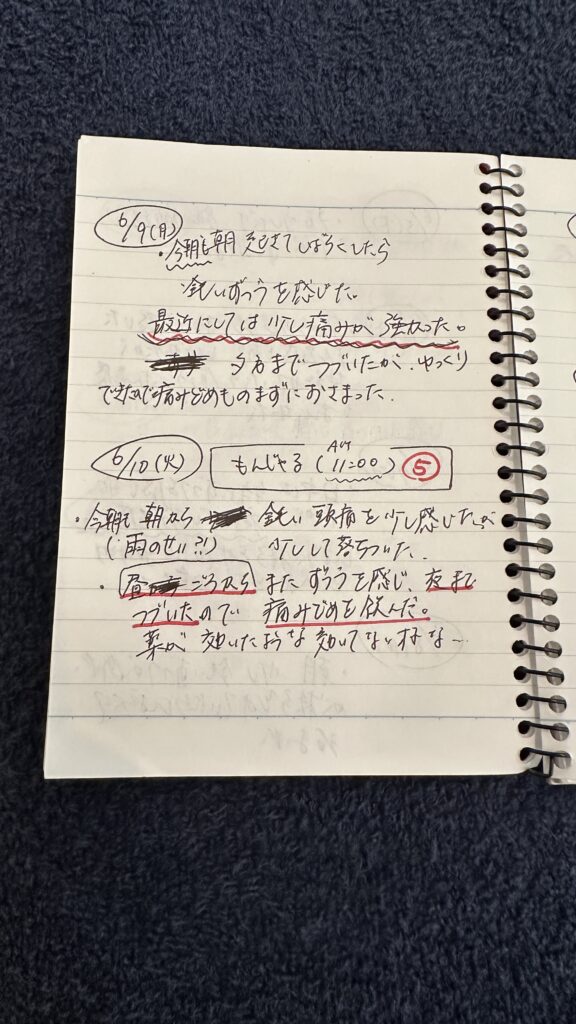 6/9(月)
・今朝も朝 起きてしばらくしたら
鈍いずつうを感じた。
最近にしては少し痛みが強かった。
夕方までつづいたが、ゆっくり
できたので痛みどめものまずにおさまった.
6/10(火) (AM 11:00) ⑤
・今朝も 朝から 鈍い 頭痛を少し感じたが
(雨のせい?!) 少しして落ちついた.
・昼ごろから また ずつうを感じ、夜まで
つづいたので 痛みどめを飲んだ。
薬が 効いたような 効いてないような〜